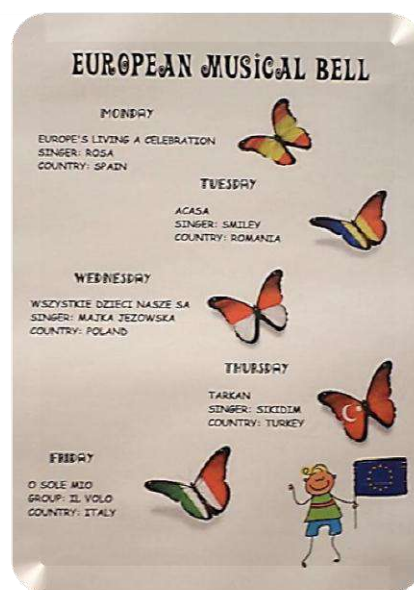 EUROPEAN MUSICAL BELL
MONDAY
EUROPE'S LIVING A CELEBRATION
SINGER: ROSA
COUNTRY: SPAIN
TUESDAY
ACASA
SINGER: SMILEY
COUNTRY: ROMANIA
WEDNESDAY
WSZYSTKIE DZIECI NASZE SA
SINGER: MAJKA JEZOWSKA
COUNTRY: POLAND
THURSDAY
TARKAN
SINGER: SIKIDIM
COUNTRY: TURKEY
FRIDAY
O SOLE MIO
GROUP: IL VOLO
COUNTRY: ITALY